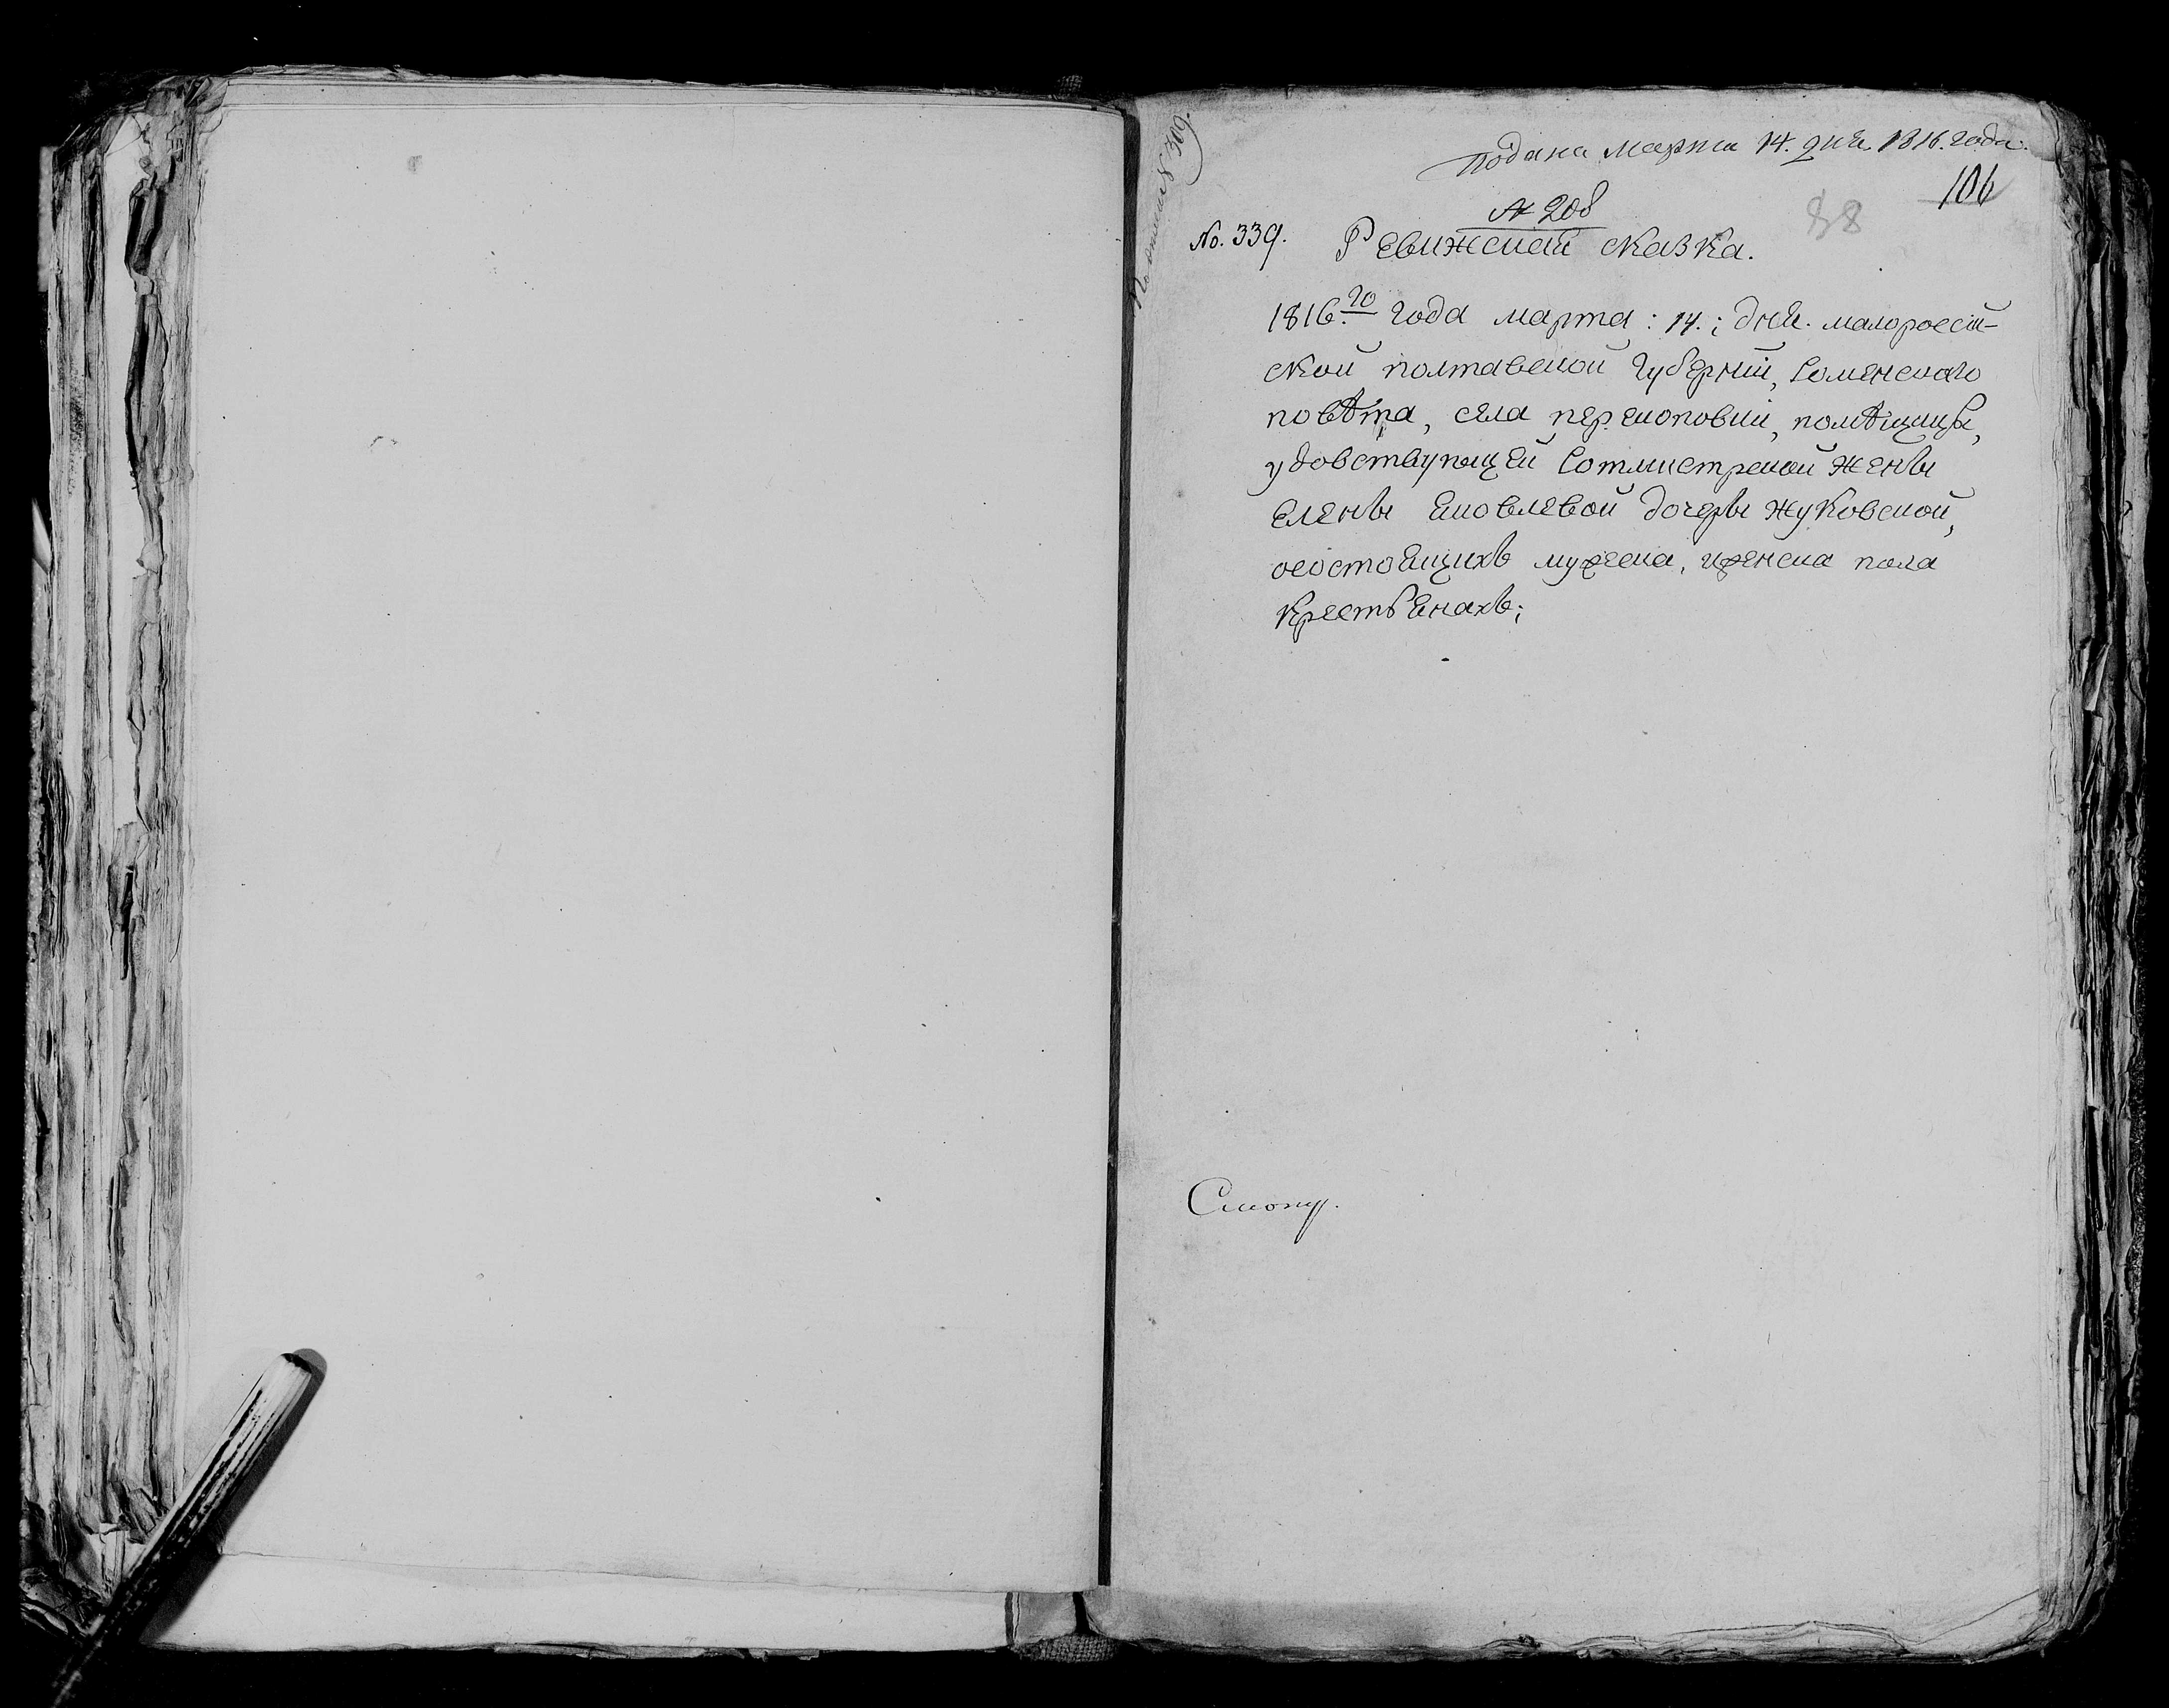 подана марта 14. дня 1816. года.
106
88
№ 208
No. 339. Ревижская сказка.
1816.го года марта : 14. ; дня. малороссій-
ской полтавской губерніи, роменского
повѣта, села перекоповки, помѣщицы,
удовствующей ротмистрской жены
елены яковлевой дочеры жуковской,
осостоящихъ мужеска, иженска пола
крестьянахъ;